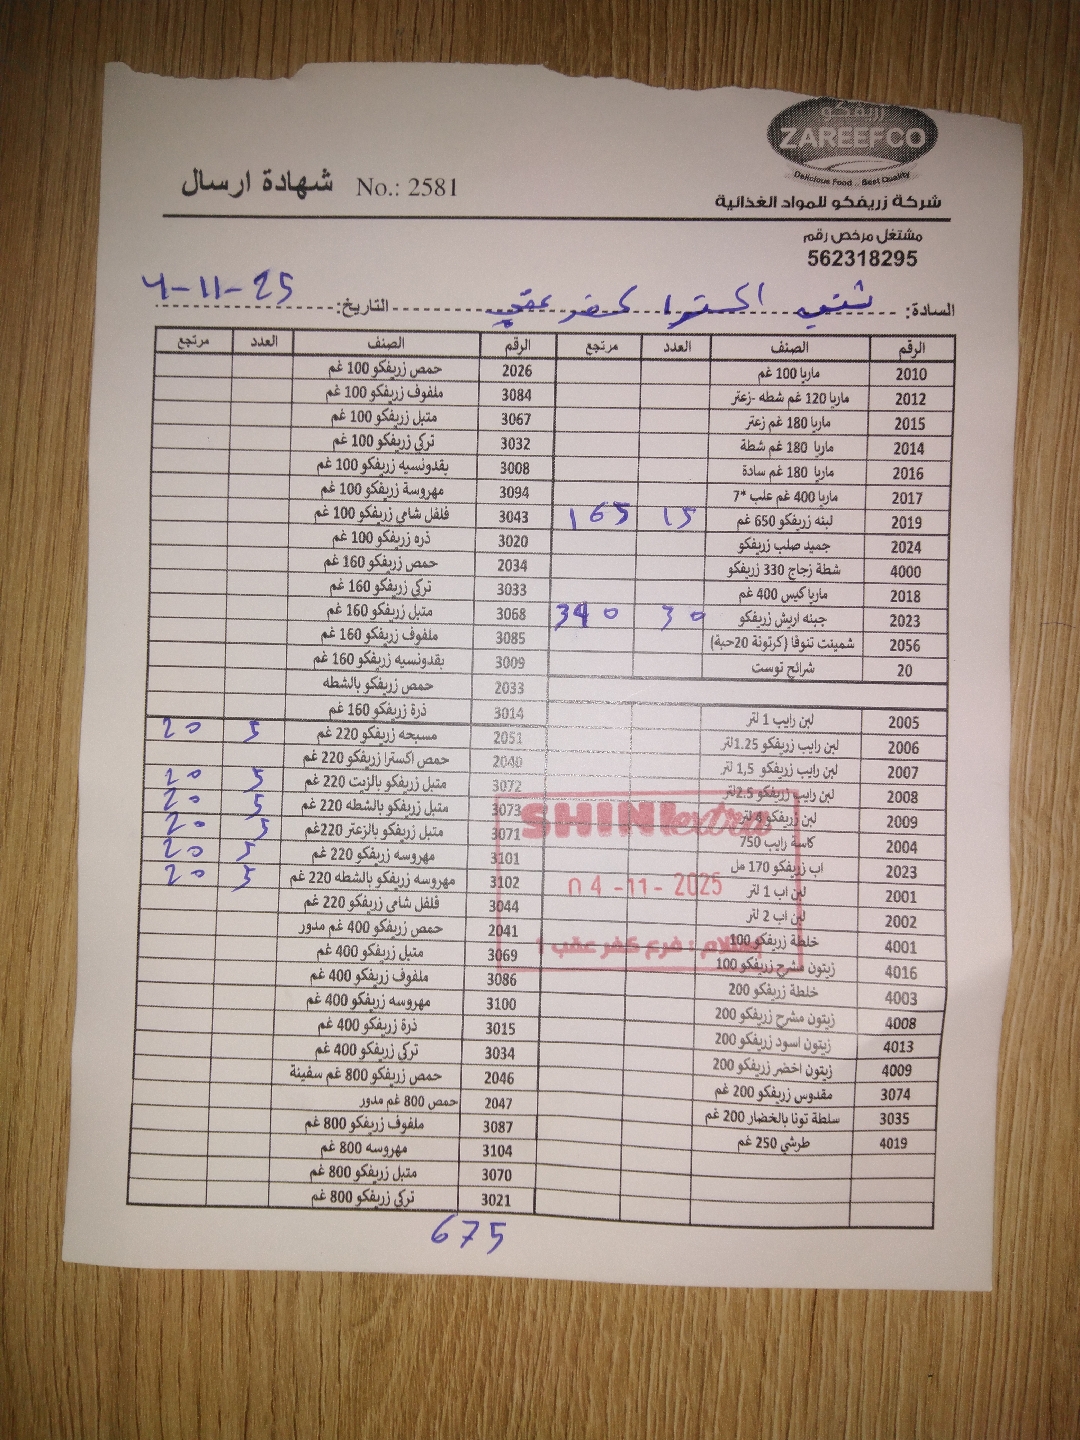 زريفكو
ZAREEFCO
Delicious Food .. Best Quality
شهادة ارسال No.: 2581
شركة زريفكو للمواد الغذائية
مشتغل مرخص رقم
562318295
السادة: شني اكسترا كفر عقب التاريخ: 4-11-25
الرقم الصنف العدد مرتجع الرقم الصنف العدد مرتجع
2010 ماريا 100 غم 2026 حمص زريفكو 100 غم
2012 ماريا 120 غم شطه -زعتر 3084 ملفوف زريفكو 100 غم
2015 ماريا 180 غم زعتر 3067 متبل زريفكو 100 غم
2014 ماريا 180 غم شطة 3032 تركي زريفكو 100 غم
2016 ماريا 180 غم سادة 3008 بقدونسيه زريفكو 100 غم
2017 ماريا 400 غم علب *7 3094 مهروسة زريفكو 100 غم
2019 لبنه زريفكو 650 غم 15 165 3043 فلفل شامي زريفكو 100 غم
2024 جميد صلب زريفكو 3020 ذره زريفكو 100 غم
4000 شطة زجاج 330 زريفكو 2034 حمص زريفكو 160 غم
2018 ماريا كيس 400 غم 3033 تركي زريفكو 160 غم
2023 جبنه اريش زريفكو 30 390 3068 متبل زريفكو 160 غم
2056 شمينت تنوفا (كرتونة 20حبة) 3085 ملفوف زريفكو 160 غم
20 شرائح توست 3009 بقدونسيه زريفكو 160 غم
2033 حمص زريفكو بالشطه
2005 لبن رايب 1 لتر 3014 ذرة زريفكو 160 غم
2006 لبن رايب زريفكو 1.25لتر 2051 مسبحه زريفكو 220 غم 5 20
2007 لبن رايب زريفكو 1,5 لتر 2040 حمص اكسترا زريفكو 220 غم
2008 لبن رايب زريفكو 2.5لتر 3072 متبل زريفكو بالزيت 220 غم 5 20
2009 لبن زريفكو لتر 3073 متبل زريفكو بالشطه 220 غم 5 20
2004 كاسة رايب 750 3071 متبل زريفكو بالزعتر 220غم 5 20
2023 اب زريفكو 170 مل 3101 مهروسه زريفكو 220 غم 5 20
2001 لبن اب 1 لتر 3102 مهروسه زريفكو بالشطه 220 غم 5 20
2002 لبن اب 2 لتر 3044 فلفل شامي زريفكو 220 غم
4001 خلطة زريفكو 100 2041 حمص زريفكو 400 غم مدور
4016 زيتون مشرح زريفكو 100 3069 متبل زريفكو 400 غم
4003 خلطة زريفكو 200 3086 ملفوف زريفكو 400 غم
4008 زيتون مشرح زريفكو 200 3100 مهروسه زريفكو 400 غم
4013 زيتون اسود زريفكو 200 3015 ذرة زريفكو 400 غم
4009 زيتون اخضر زريفكو 200 3034 تركي زريفكو 400 غم
3074 مقدوس زريفكو 200 غم 2046 حمص زريفكو 800 غم سفينة
3035 سلطة تونا بالخضار 200 غم 2047 حمص 800 غم مدور
4019 طرشي 250 غم 3087 ملفوف زريفكو 800 غم
3104 مهروسه 800 غم
3070 متبل زريفكو 800 غم
3021 تركي زريفكو 800 غم
SHINI extra
04 -11- 2025
استلام : فرع كفر عقب 1
675